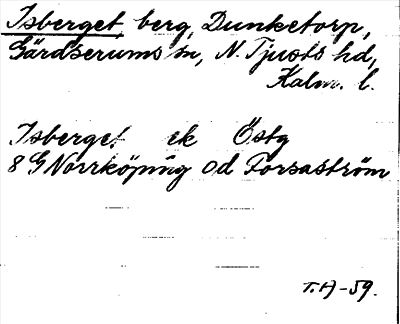 Isberget, berg, Dunketorp,
Gärdserums sn, N. Tjusts hd,
Kalm. l.
Isberget ek Östg
8 G Norrköping 0d Forsaström
T.H-59.